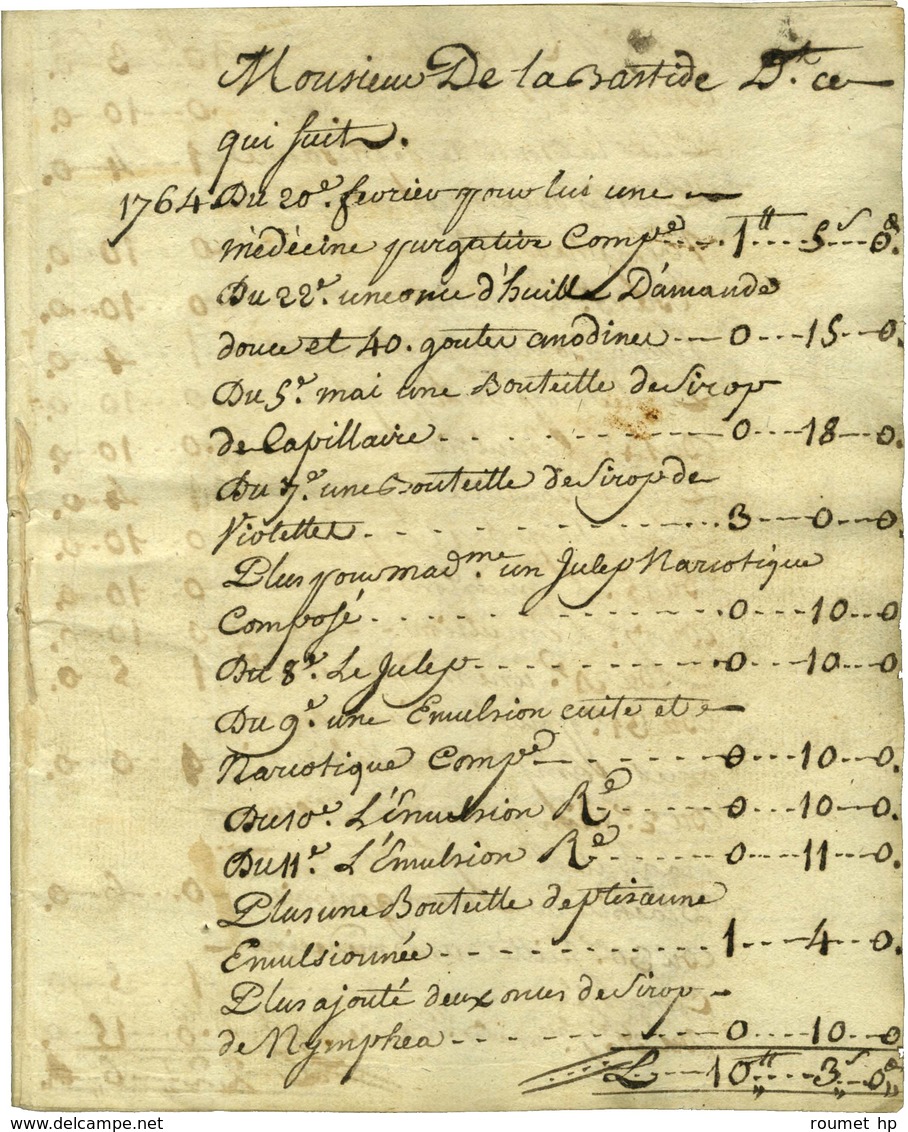 Monsieur De la Bastide D.t ce
qui suit.
1764. Du 20.e fevrier pour lui une
médécine purgative Comp.ée .... 1tt .... 5s ... 0d.
Du 22.e une once d'huille D'amande
douce et 40. goutes anodines -- 0 ... 15 .. 0.
Du 5.e mai une Bouteille de Sirop
de Capillaire . - - - - - - - 0 ... 18 -- 0.
Du 7.e une Bouteille de Sirop de
Violettes . - - - - - - - ... 3 ... 0 -- 0.
Plus pour mad.me un Julep Narcotique
Composé . - - - - - - - . 0 ... 10 -- 0
Du 8.e Le Julep - - - - - - 0 ... 10 -- 0.
Du 9.e une Emulsion cuite et
Narcotique Comp.ée - - - - - 0 ... 10 .. 0.
Du 10.e L'Émulsion R.ée - - - 0 ... 10 -- 0.
Du 11.e L'Émulsion R.ée - - - 0 ... 11 -- 0.
Plus une Bouteille de ptisanne
Emulsionnée - - - - - - - 1 ... 4 -- 0.
Plus ajouté deux onces de Sirop
de Nymphea - - - - - - - 0 ... 10 -- 0
L ... 10tt .... 3s .. 0d
roumet hp